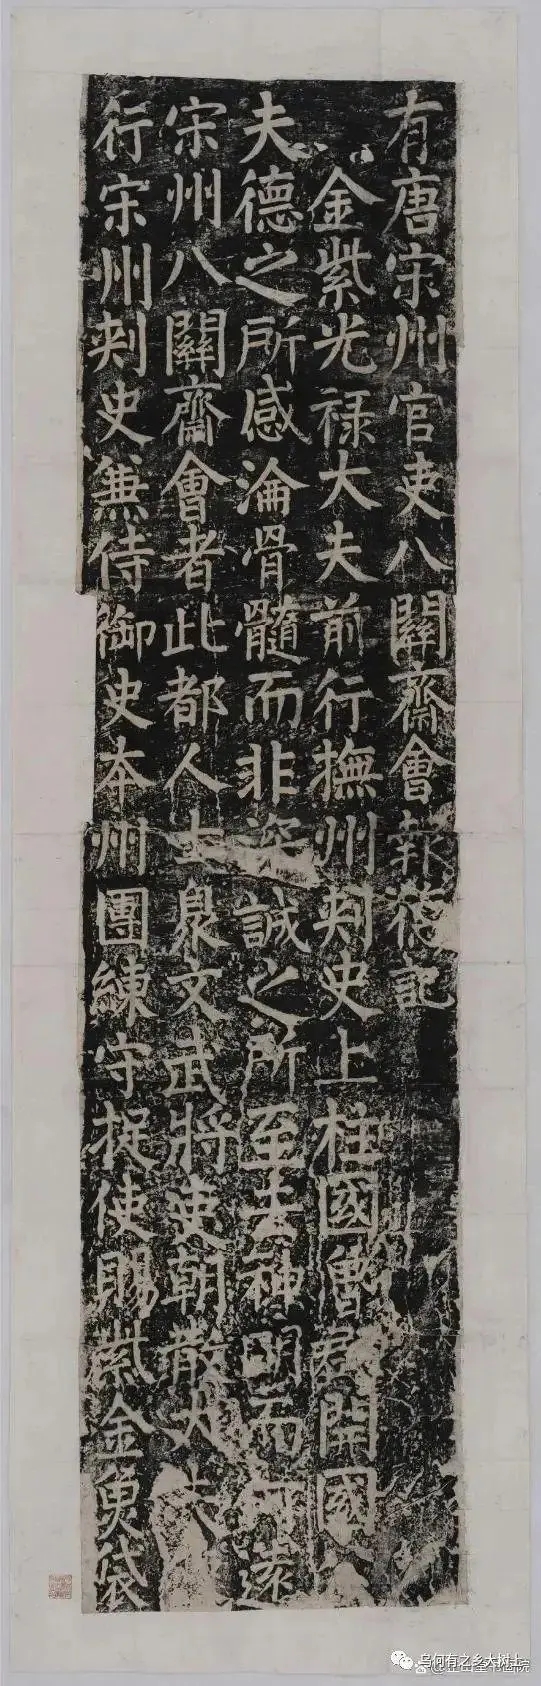 有唐宋州官吏八關齋會報德記
金紫光祿大夫前行撫州刺史上柱國魯郡開國
夫德之所感淪骨髓而非深誠之所至去神明而何遠
宋州八關齋會者此都人士衆文武將吏朝散大夫
行宋州刺史兼侍御史本州團練守捉使賜紫金魚袋
乌何有之乡大树上